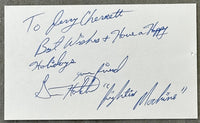 To Jerry Chernett
Best Wishes + Have a Happy
Holidays
your friend
"Fightin Machine"